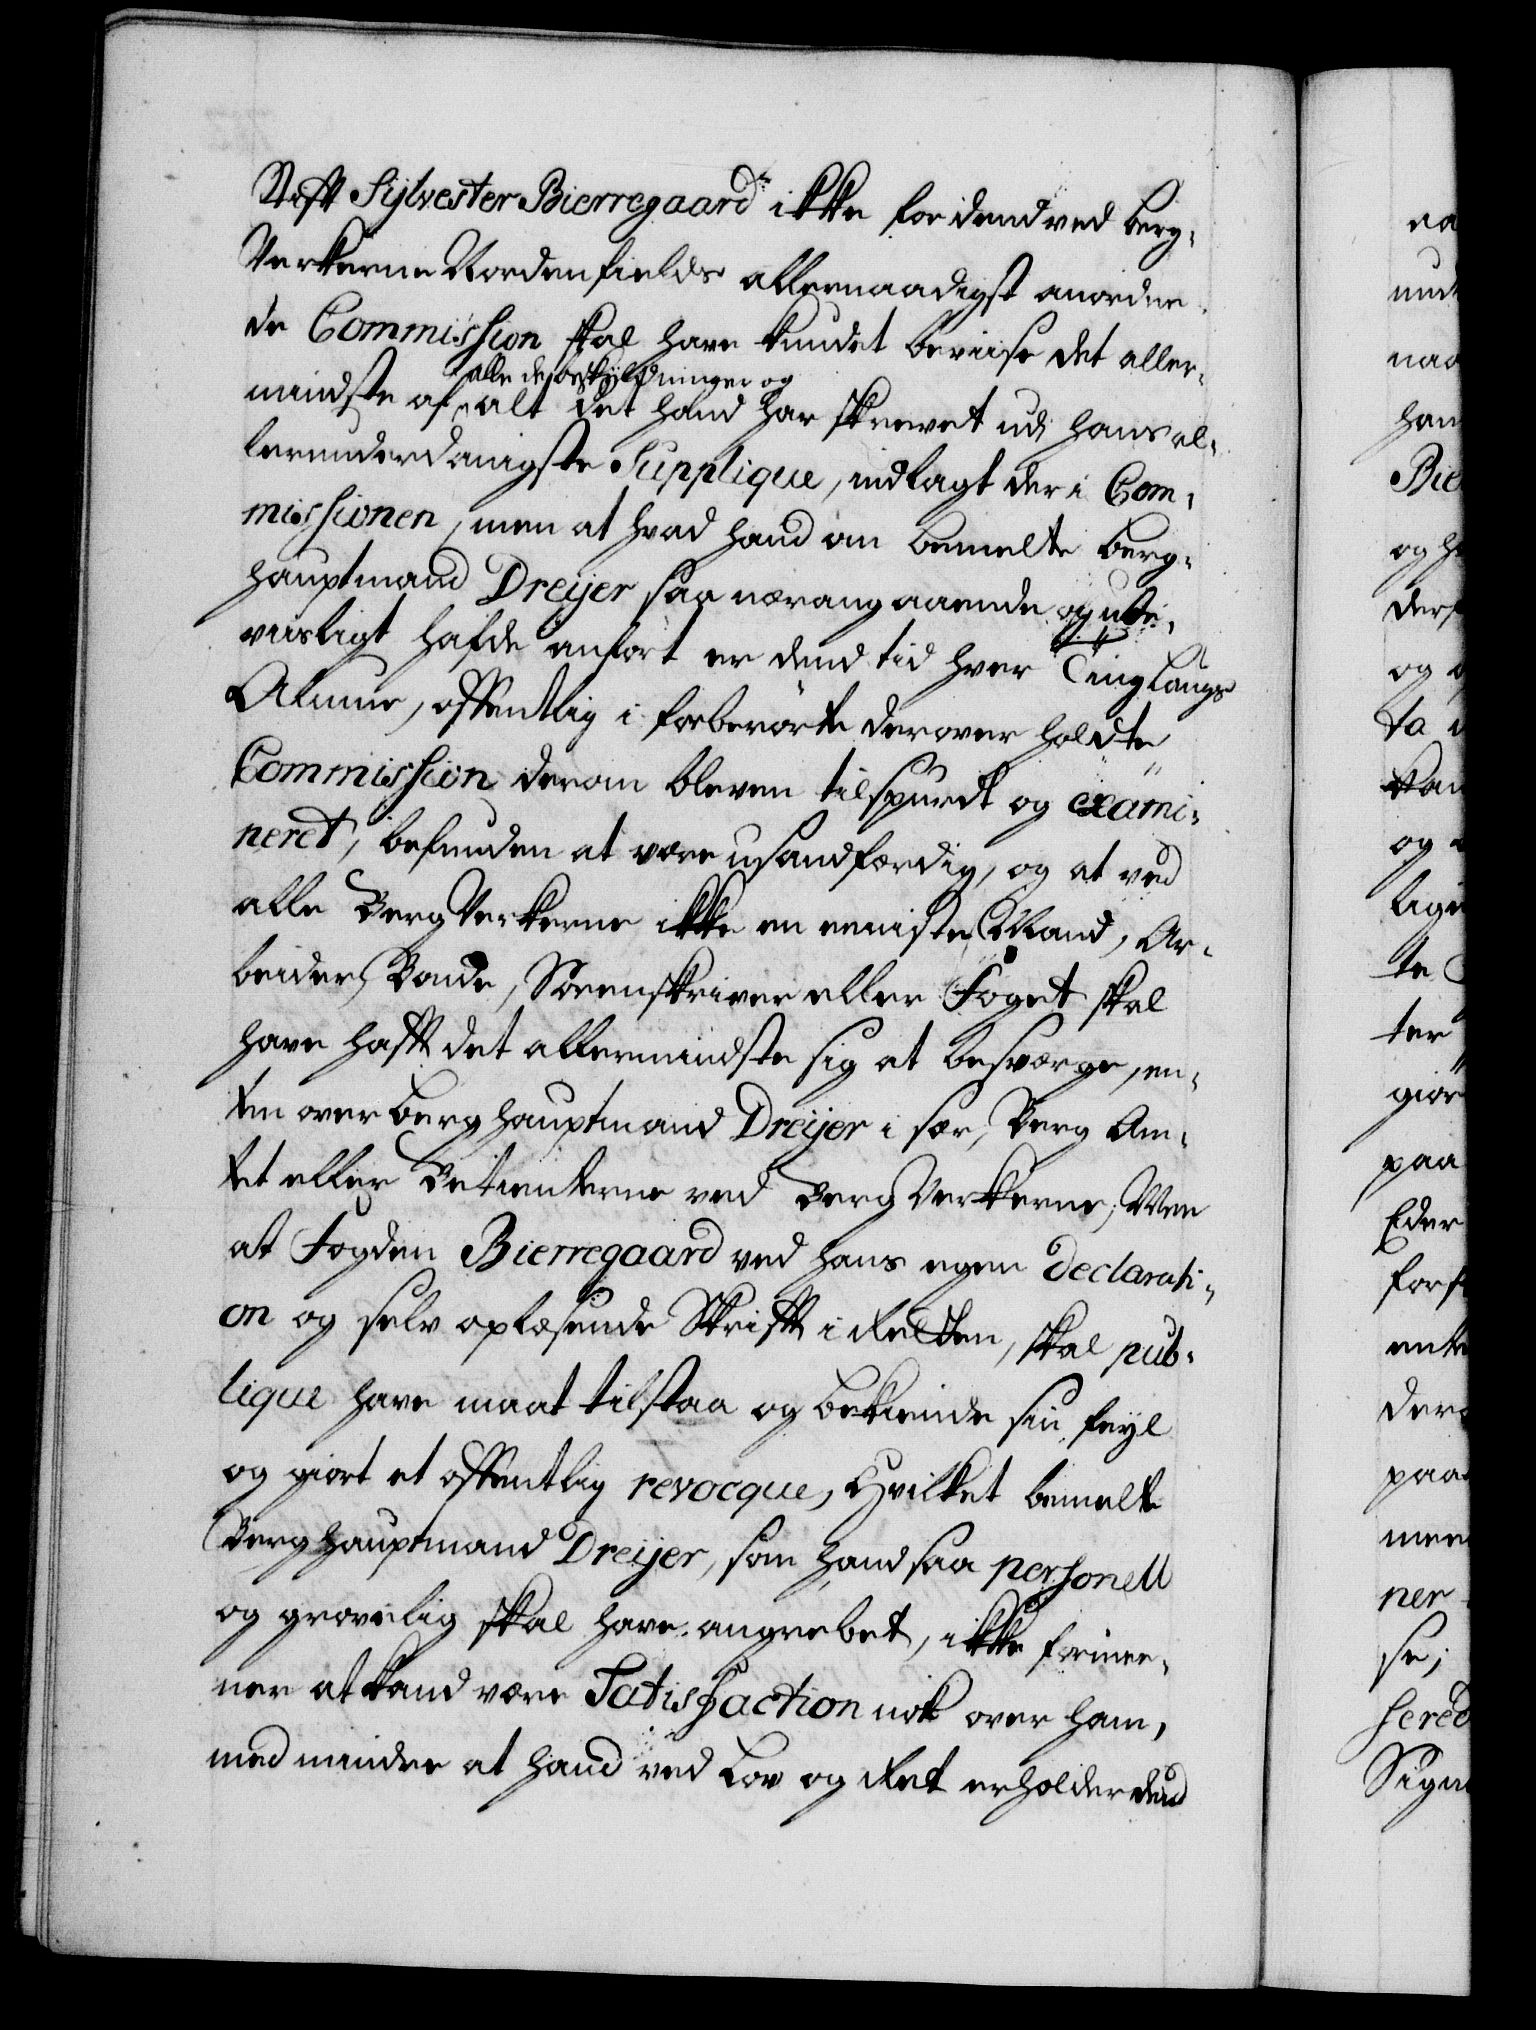 Stift Sylvester Bierregaard ikke for dend ved Berg-
Verkerne Nordenfields allernaadigst anordne-
de Commission skal have kundet beviise det aller-
alle de beskyldninger og
mindste af alt det hand har skrevet udj hans al-
lerunderdanigste Supplique, indlagt der i Com-
missionen, men at hvad hand om bemelte Berg-
hauptmand Dreyer saa nærangaaende og ube-
viisligt hafde anført er dend tid hver Tinglaugs
Almue, offentlig i forberørte derover holdte
Commission derom bleven tilspurdt og exami-
neret, befunden at være usandfærdig, og at ved
alle BergVerkerne ikke en eeniste Mand, Ar-
beider, Bonde, Sorenskriver eller Foget skal
have hafft det allermindste sig at besværge, en-
ten over Berghauptmand Dreyer i sær, Berg Am-
tet eller Betienterne ved BergVerkerne, Men
at Fogden Bierregaard ved hans egen declarati-
on og selv oplæsende Skrifft i Retten, skal pub-
lique have maat tilstaa og bekiende sin feyl
og giort et offentlig revocque, Hvilket bemelte
Berghauptmand Dreyer, som hand saa personell
og grovelig skal have angrebet, ikke formee-
ner at kand være Satisfaction nok over ham,
med mindre at hand ved Lov og Ret erholder dend